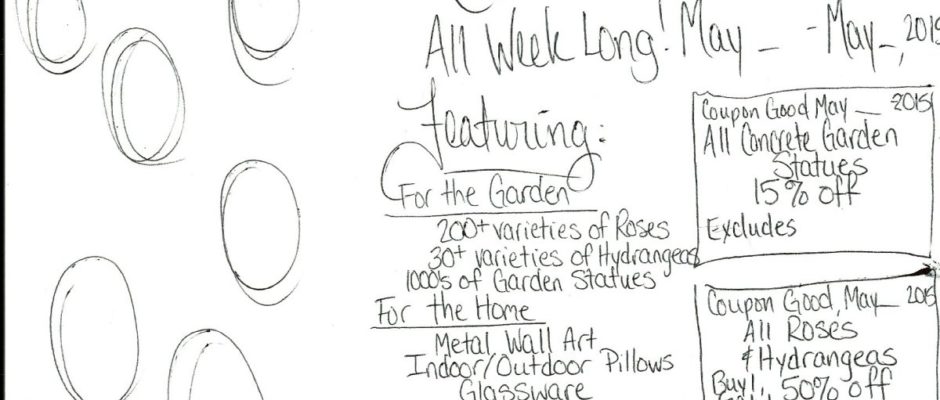 All Week Long! May _ - May _, 2015
Featuring:
For the Garden
200+ varieties of Roses
30+ varieties of Hydrangeas
1000's of Garden Statues
For the Home
Metal Wall Art
Indoor/Outdoor Pillows
Glassware
Coupon Good May _ 2015
All Concrete Garden
Statues
15% off
Excludes
Coupon Good, May _ 2015
All Roses
& Hydrangeas
Buy 1, 50% off